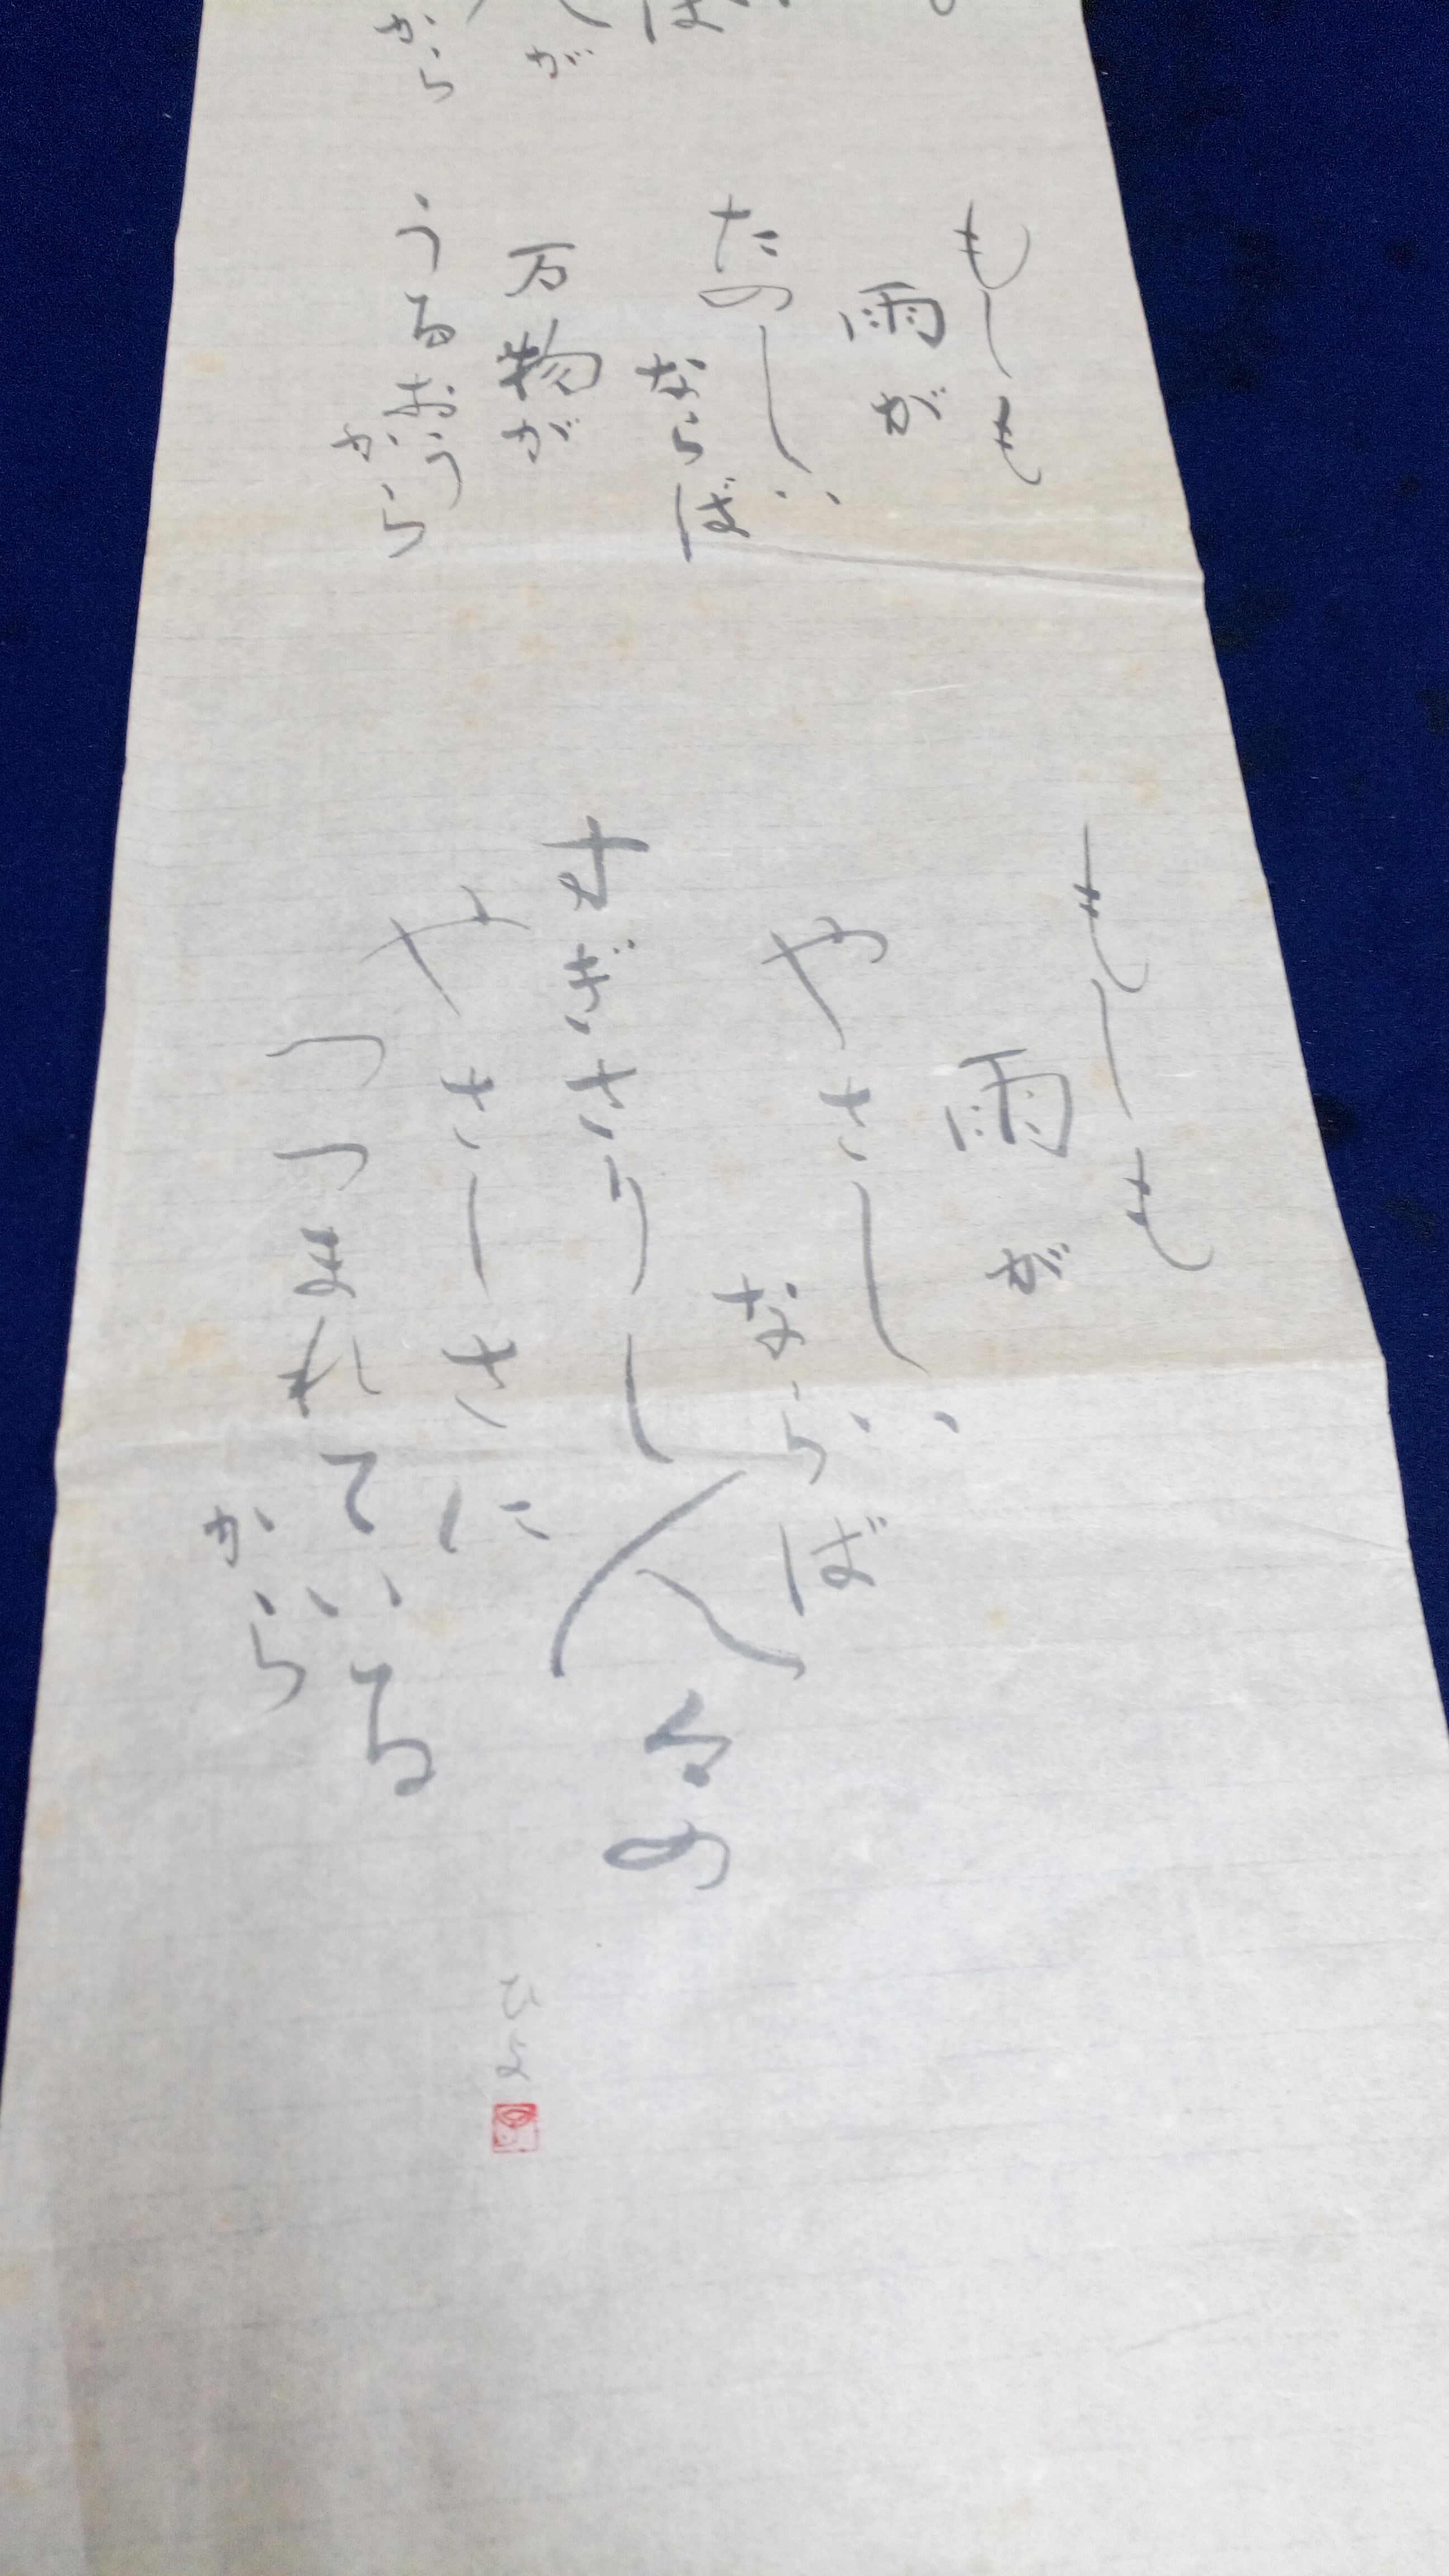 ば
が
から
もしも
雨が
たのしい
ならば
万物が
うるおう
から
もしも
雨が
やさしい
ならば
すぎさりし人々の
やさしさに
つつまれている
から
ひよ